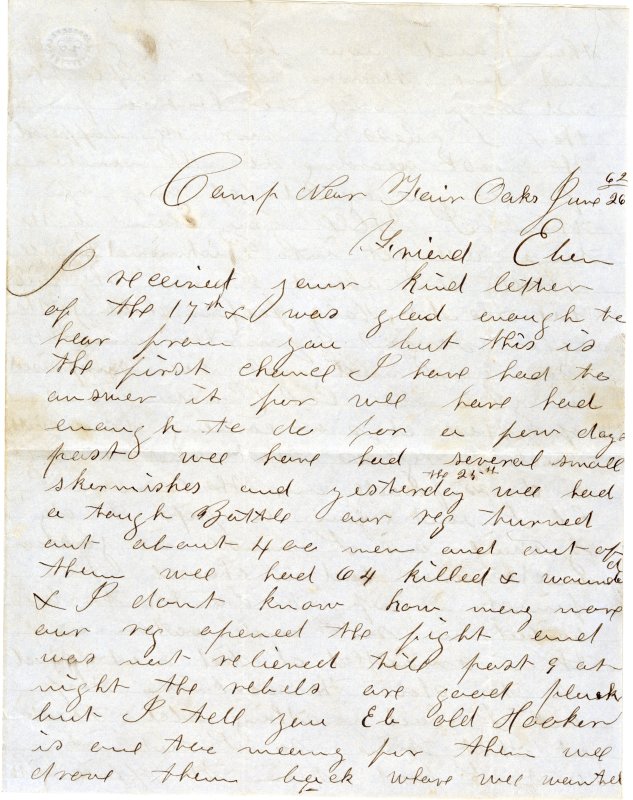 Camp Near Fair Oaks June 62/26
Friend Eben
I received your kind letter
of the 17th & was glad enough to
hear from you but this is
the first chance I have had to
answer it for wee have had
enough to do for a few days
past wee have had several small
skermishes and yesterday the 25th wee had
a tough Battle our reg turned
out about 400 men and out of
them wee had 64 killed & wounded
& I dont know how meny more
our reg opened the fight and
was not relieved till past 9 at
night the rebels are good pluck
but I tell you Eb old Hooker
is one too meny for them wee
drove them back whare wee wanted